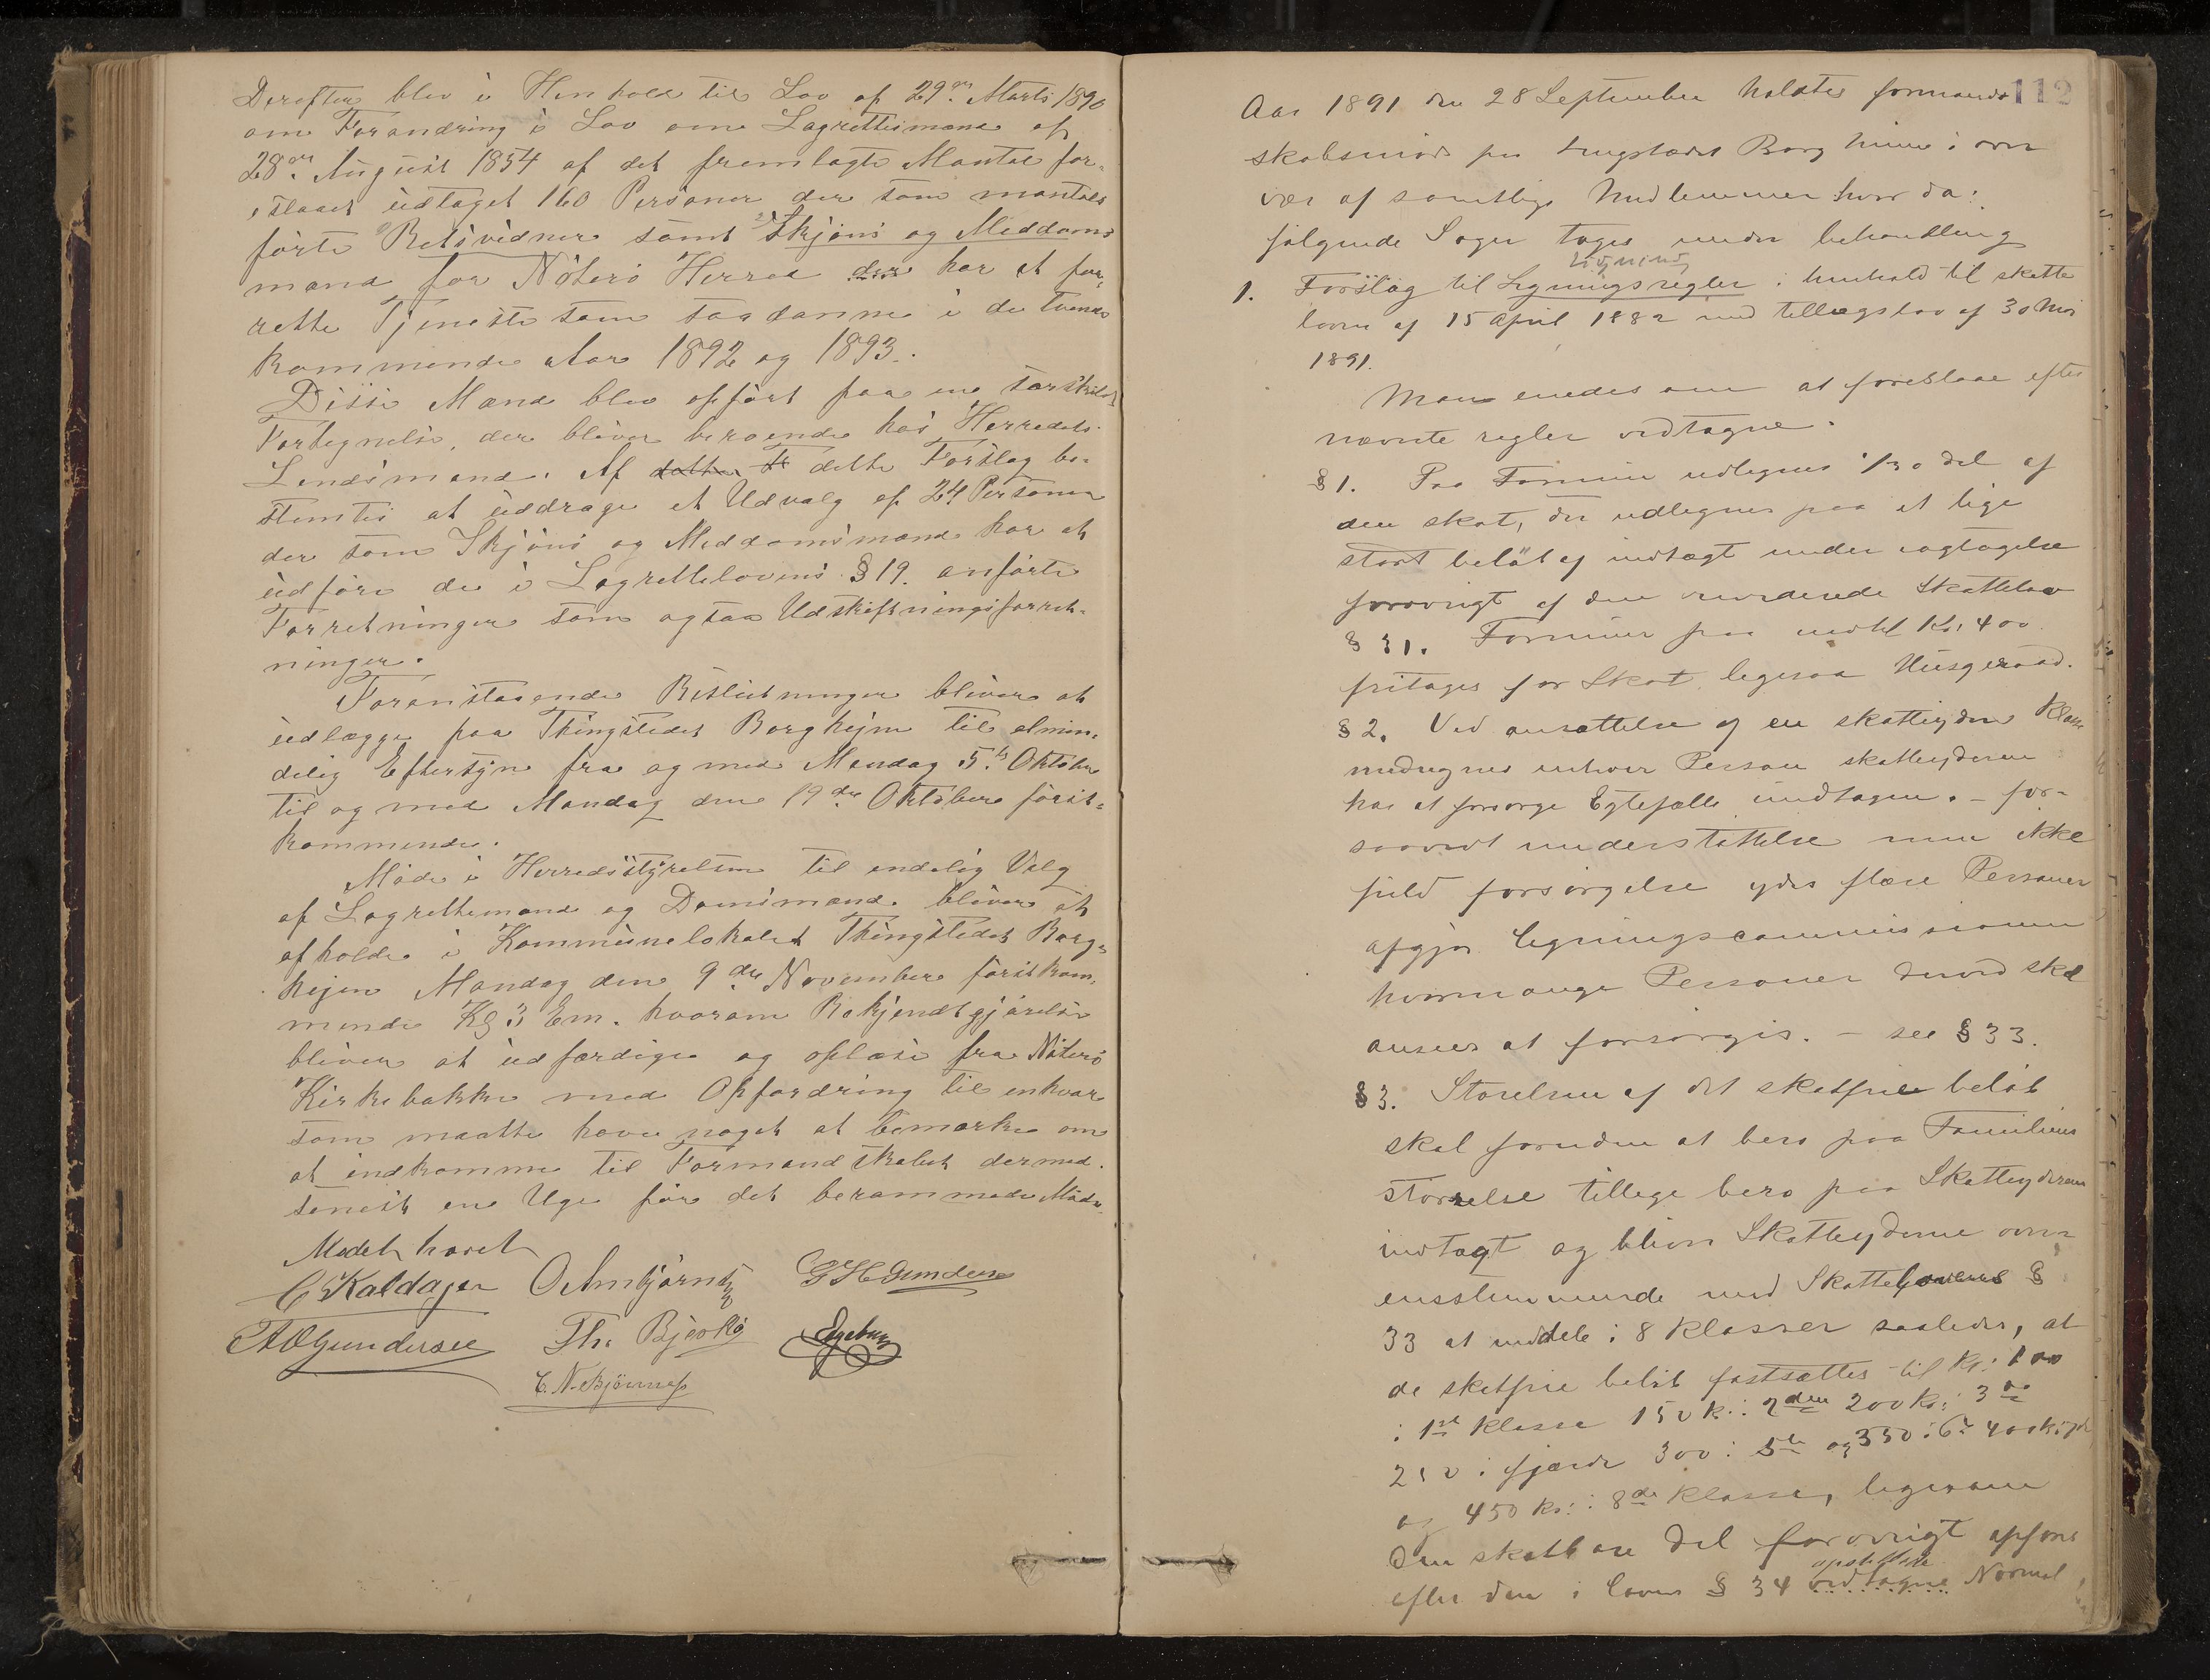 Derefter blev i Henhold til Lov af 29de Marts 1890
om Forandring i Lov om Lagrettesmænd af
28de August 1854 af det fremlagte Mantal fore-
slaaet udtaget 160 Personer der som mantals
førte Retsvidner samt Skjøns og Meddoms
mænd for Nøterø Herred der har at for-
rette Tjeneste som saadanne i de tvende
kommende Aar 1892 og 1893.
Disse Mænd blev opført paa en særskilt
Fortegnelse, der bliver beroende hos Herredets
Lensmand. Af dette Forslag be-
stemtes at uddrage et Udvalg af 24 Personer
der som Skjøns og Meddomsmænd har at
udføre de i Lagrettelovens § 19. anførte
Forretninger som ogsaa Udskiftningsforret-
ninger.
Foranstaaende Beslutninger bliver at
udlægge paa Thingstedet Borghejm til almin-
delig Eftersyn fra og med Mandag 5te Oktober
til og med Mandag den 19de Oktober først-
kommende.
Møde i Herredsstyrelsen til endelig Valg
af Lagrettemænd og Domsmænd bliver at
afholde i Kommunelokalet Thingstedet Borg-
hejm Mandag den 9de November førstkom-
mende Kl 3 Em. hvorom Bekjendtgjørelse
bliver at udfærdige og oplæse fra Nøterø
Kirkebakke med Opfordring til enhver
som maatte have noget at bemærke om
at indkomme til Formandskabet dermed
senest en Uge før det berammede Møde.
Mødet hævet
C Kaldager O Ambjørnsen G H Gundersen
A O Gundersen Th. Bjerkø
C. N. Bjønnes
112
Aar 1891 den 28 September holdtes formand
skabsmøde paa tingstedet Borg heim i over
vær af samtlige Medlemmer hvor da:
følgende Sager toges under behandling
Ligning
1. Forslag til Ligningsregler i henhold til skatte
loven af 15 April 1882 med tillægslov af 30 Mai
1891.
Man enedes om at foreslaa efter
nævnte regler vedtagne.
§ 1. Paa Formue udlignes 1/30 del af
den skat, der udlignes paa et lige
stort beløb af indtægt under iagtagelse
forøvrigt af den reviderede Skattelov
§ 31. Formuer paa indtil Kr. 400
fritages for Skat ligesaa Husgeraad.
§ 2. Ved ansættelse af en skatteyders Klasse
medregnes enhver Person skatteyderen
har at forsørge Egtefælle undtagen. – for-
saavidt understøttelse men ikke
fuld forsørgelse ydes flere Personer
afgjør ligningscommissionen
hvormange Personer derved skal
ansees at forsørges. – see § 33.
§ 3. Størrelsen af det skatfrie beløb
skal foruden at bero paa Familiens
størrelse tillige bero paa Skatteyderens
indtægt og bliver Skatteyderne over
ensstemmende med Skattelovens §
33 at inddele i 8 Klasser saaledes, at
de skatfrie beløb fastsættes til Kr: 100
i 1ste Klasse 150 k. i 2den 200 kr. i 3de
250 i fjærde 300 i 5te og 350 i 6te 400 k i 7de
og 450 kr. i 8de Klasse, ligesom
den skatbare del forøvrigt opføres
opstillede
efter den i lovens § 34 vedtagne Normal